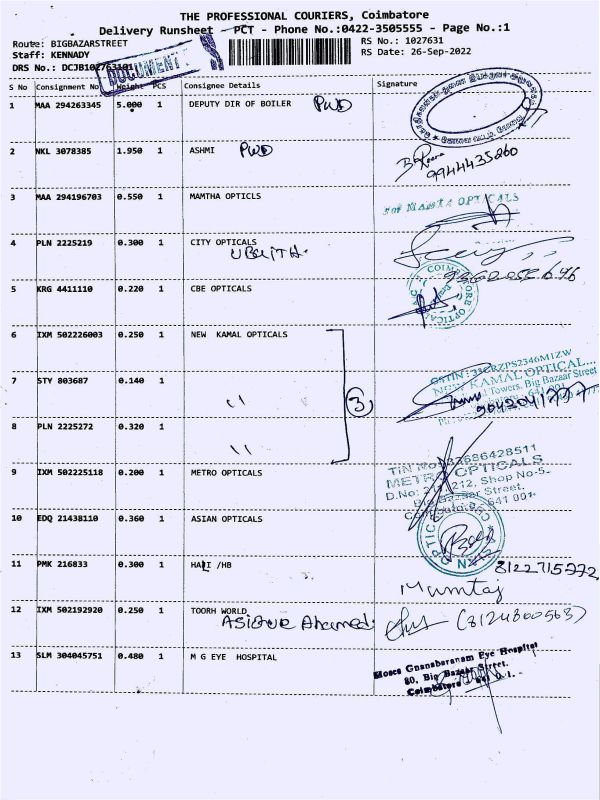 THE PROFESSIONAL COURIERS, Coimbatore
Delivery Runsheet - PCT - Phone No.:0422-3505555 - Page No.:1
Route: BIGBAZARSTREET
RS No.: 1027631
Staff: KENNADY
RS Date: 26-Sep-2022
DRS No.: DCJB102763101
DOCUMENT
S No Consignment No. Weight PCS Consignee Details Signature
1 MAA 294263345 5.000 1 DEPUTY DIR OF BOILER PWD
2 NKL 3078385 1.950 1 ASHMI PWD
9944435260
3 MAA 294196703 0.550 1 MAMTHA OPTICLS
for Mamta OPTICALS
4 PLN 2225219 0.300 1 CITY OPTICALS
5 KRG 4411110 0.220 1 CBE OPTICALS
COIMBATORE OPTICAL
6 IXM 502226003 0.250 1 NEW KAMAL OPTICALS
GSTIN : 33CRZPS2346M1ZW
NEW KAMAL OPTICAL...
Towers, Big Bazaar Street
641 001
7 STY 803687 0.140 1 〃
3
9042041777
8 PLN 2225272 0.320 1 〃
9 IXM 502225118 0.200 1 METRO OPTICALS
TIN No 33686428511
METRO OPTICALS
D.No: 212, Shop No-5-
Big Bazaar Street,
641 001-
10 EDQ 21438110 0.360 1 ASIAN OPTICALS
11 PMK 216833 0.300 1 HARI /HB
8122715272
Mumtaj
12 IXM 502192920 0.250 1 TOORH WORLD
(8124800563)
13 SLM 304045751 0.480 1 M G EYE HOSPITAL
Moses Gnanabaranam Eye Hospital
80, Big Bazaar Street,
Coimbatore - 641 0 1. -